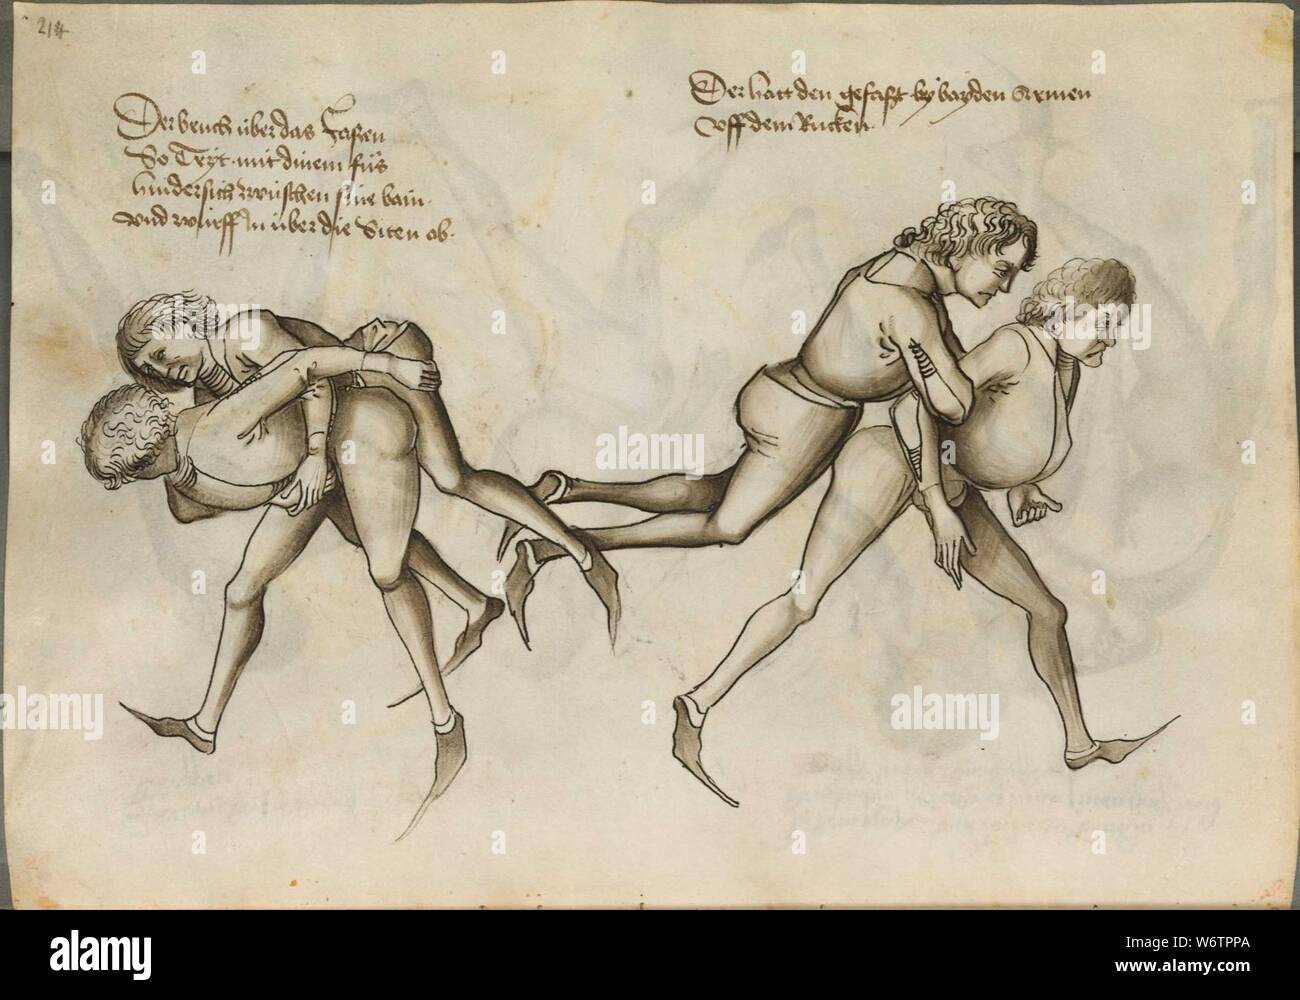 214
Der bruch über das Fassen
So Tryt mit dinem fůs
hindersich zwüschen sine bain
vnd würff In über die Siten ab.
Der hatt den gefasst by bayden Armen
vff dem Rucken.
alamy
alamy
alamy
alamy
alamy
Image ID: W6TPPA
www.alamy.com